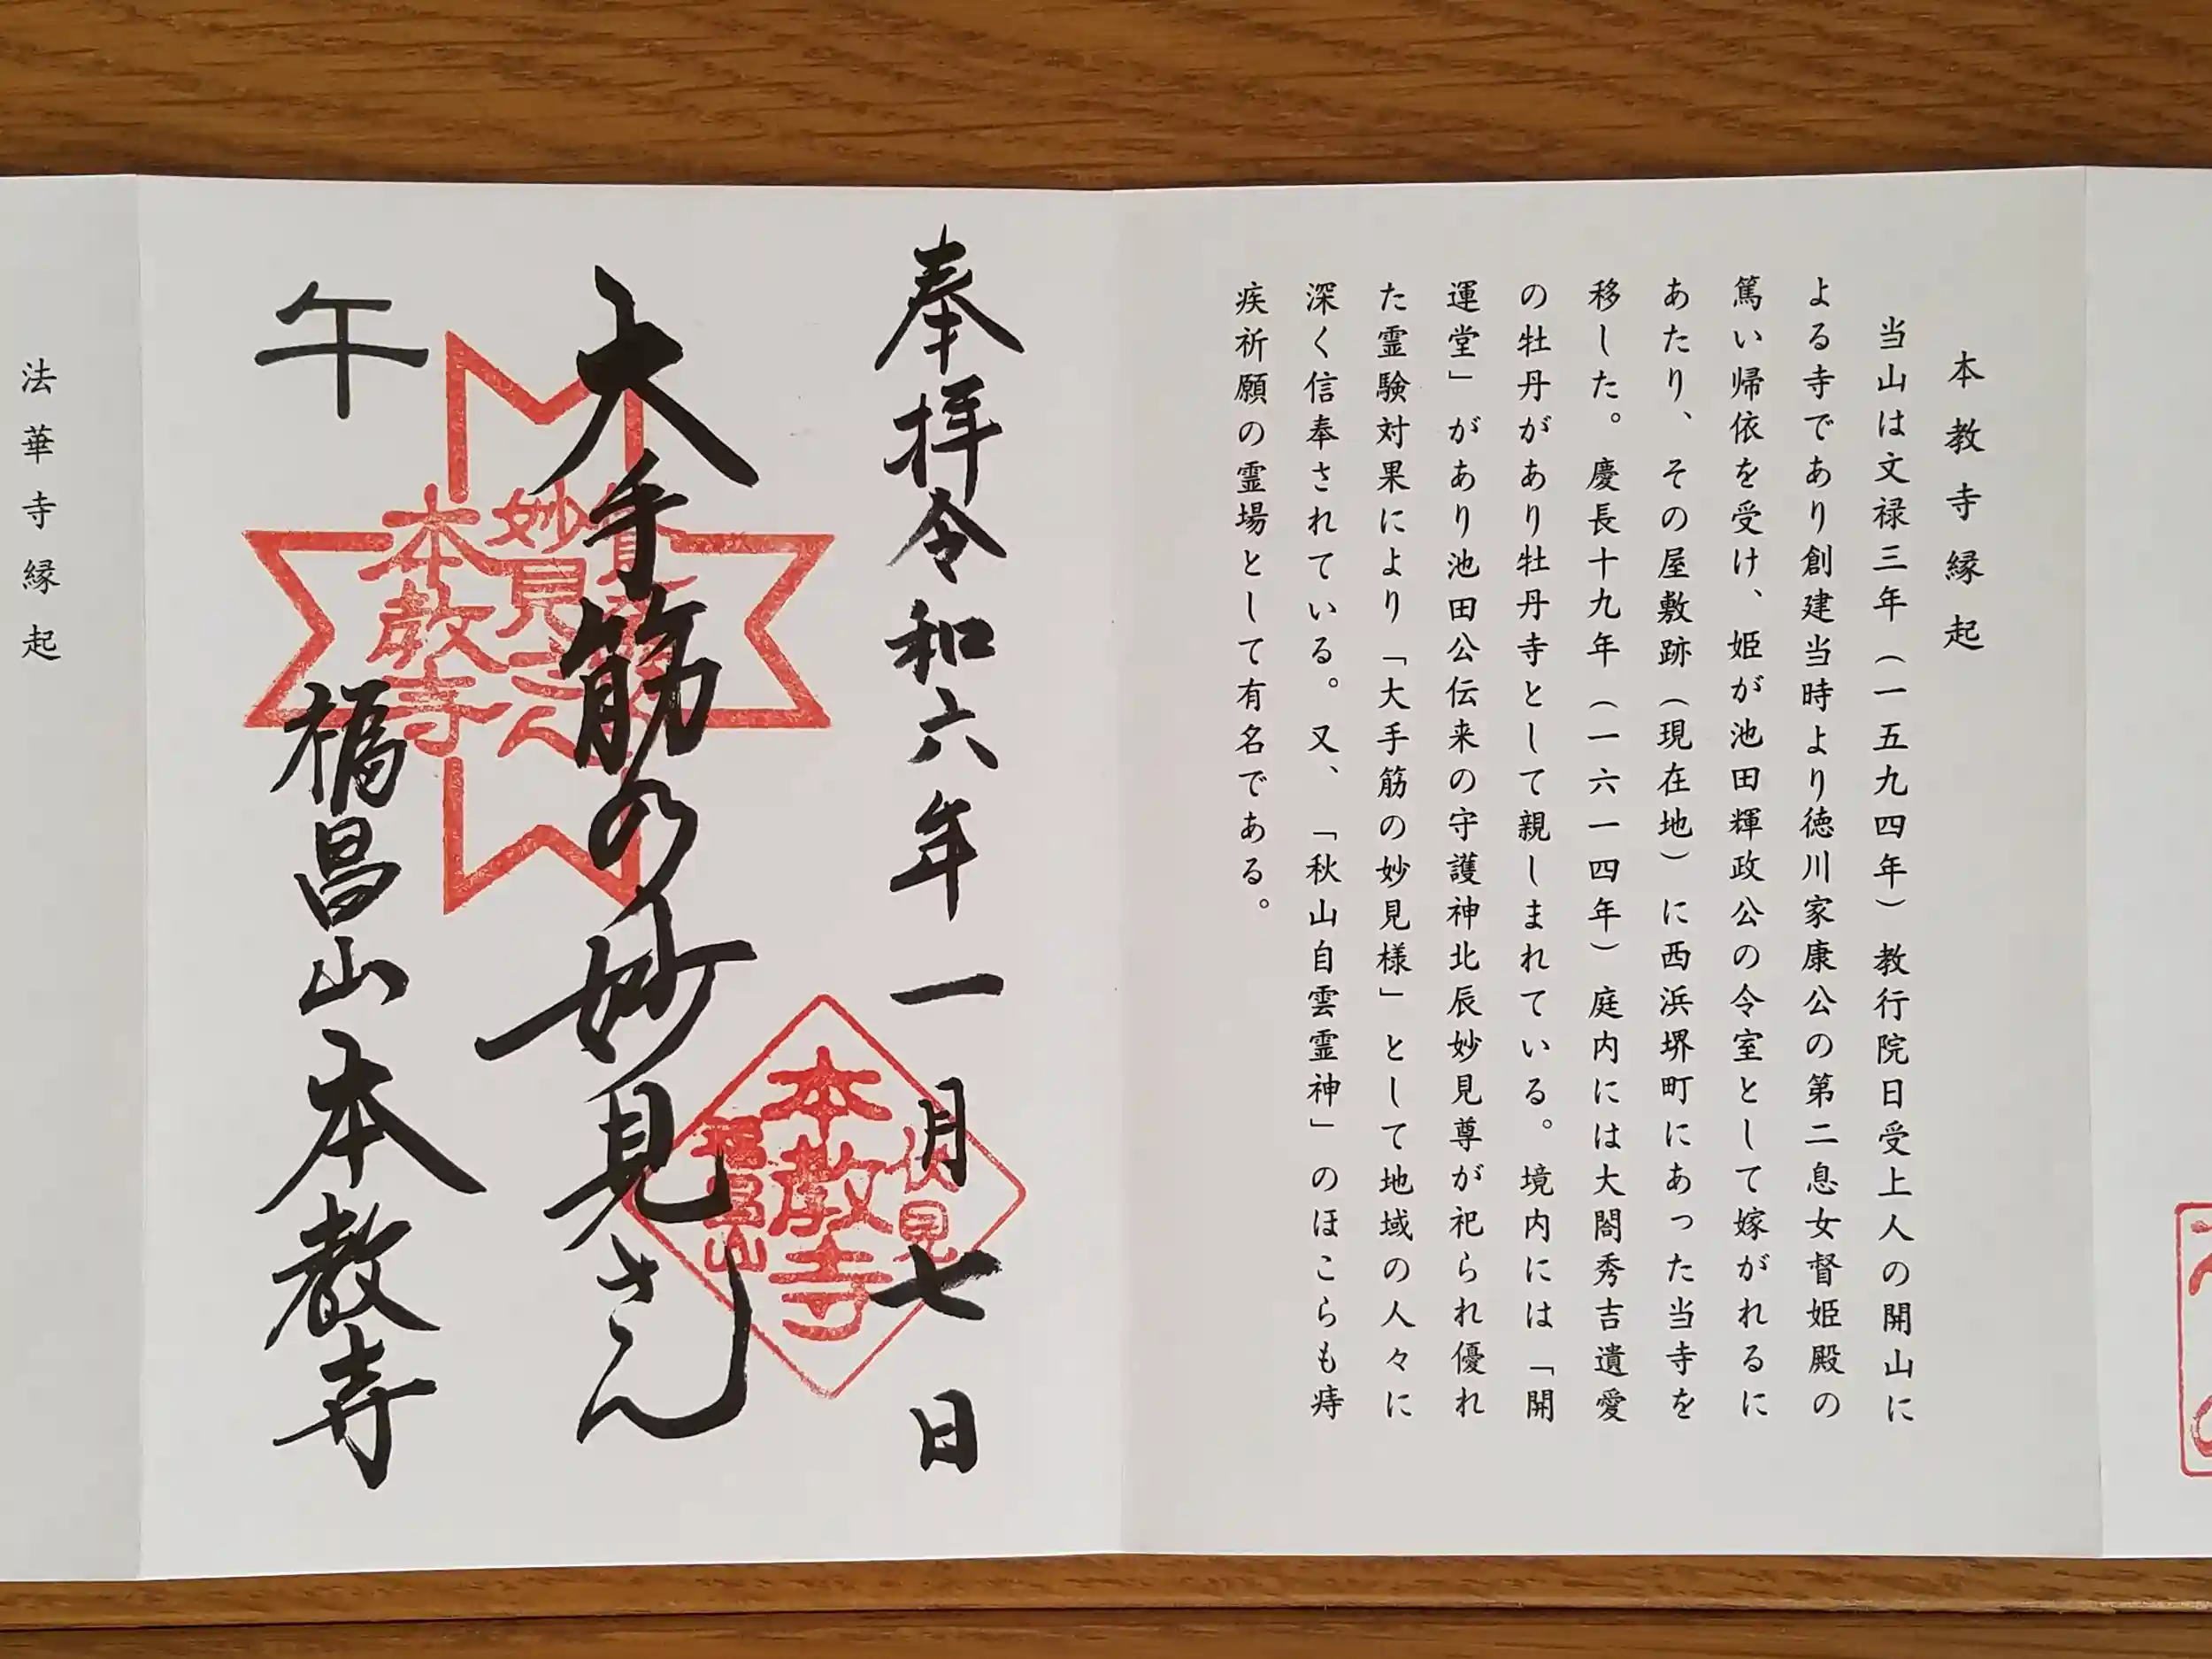 本教寺縁起
当山は文禄三年（一五九四年）教行院日受上人の開山に
よる寺であり創建当時より徳川家康公の第二息女督姫殿の
篤い帰依を受け、姫が池田輝政公の令室として嫁がれるに
あたり、その屋敷跡（現在地）に西浜堺町にあった当寺を
移した。慶長十九年（一六一四年）庭内には大閤秀吉遺愛
の牡丹があり牡丹寺として親しまれている。境内には「開
運堂」があり池田公伝来の守護神北辰妙見尊が祀られ優れ
た霊験対果により「大手筋の妙見様」として地域の人々に
深く信奉されている。又、「秋山自雲霊神」のほこらも痔
疾祈願の霊場として有名である。
奉拝令和六年一月七日
伏見
本教寺
福昌山
大手筋の妙見さん
妙見さん
本教寺
午
福昌山本教寺
法華寺縁起